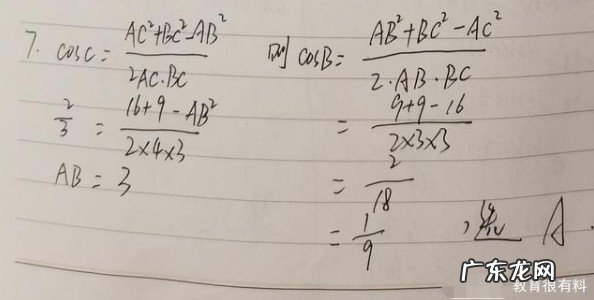 7. cosC = (AC²+BC²-AB²)/(2AC·BC)
2/3 = (16+9-AB²)/(2×4×3)
AB = 3
则 cosB = (AB²+BC²-AC²)/(2·AB·BC)
= (9+9-16)/(2×3×3)
= 2/18
= 1/9 , 选 A.
教育很有料
广东龙网